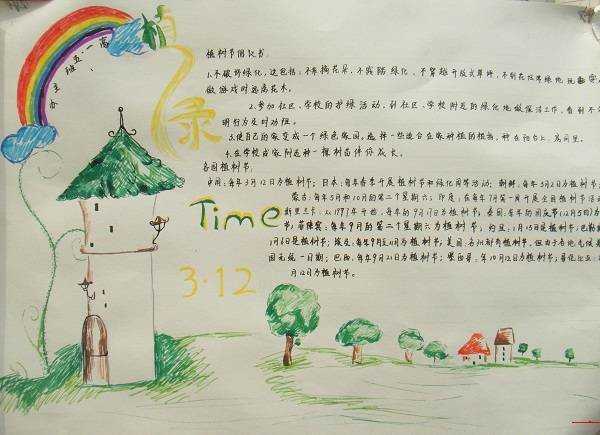 高一·五班
主办
植
绿
Time
3·12
植树节倡议书:
1、不破坏绿化,这包括:不摘花朵,不实践绿化、不穿越开放式草坪,不到花坛等绿地玩耍,
做游戏时远离花木。
2、参加社区、学校的护绿活动,到社区、学校附近的绿化地做保洁工作,看到不
明行为及时劝阻。
3、使自己的家变成一个绿色家园,选择一些适合在家种植的植物,种在阳台上、房间里。
4、在学校或家附近种一棵树苗伴你成长。
各国植树节:
中国:每年3月12日为植树节;日本:每年春季开展植树节和绿化周等活动;朝鲜:每年3月2日为植树节
蒙古:每年5月和10月的第二个星期六;印度:在每年7月第一周开展全国植树节活动
斯里兰卡:从1977年开始,每年的9月17日为植树节;泰国:每年的国庆节(12月5日)为
节;菲律宾:每年9月的第二个星期六为植树节,约旦:1月15日是植树节;巴勒
1月6日是植树节;埃及:每年9月至11月为植树节,美国:各州都有植树节,但由于各地气候
国无统一日期;巴西:每年9月21日为植树节;墨西哥:年10月12日为植树节;哥伦比亚:
月12日为植树节。